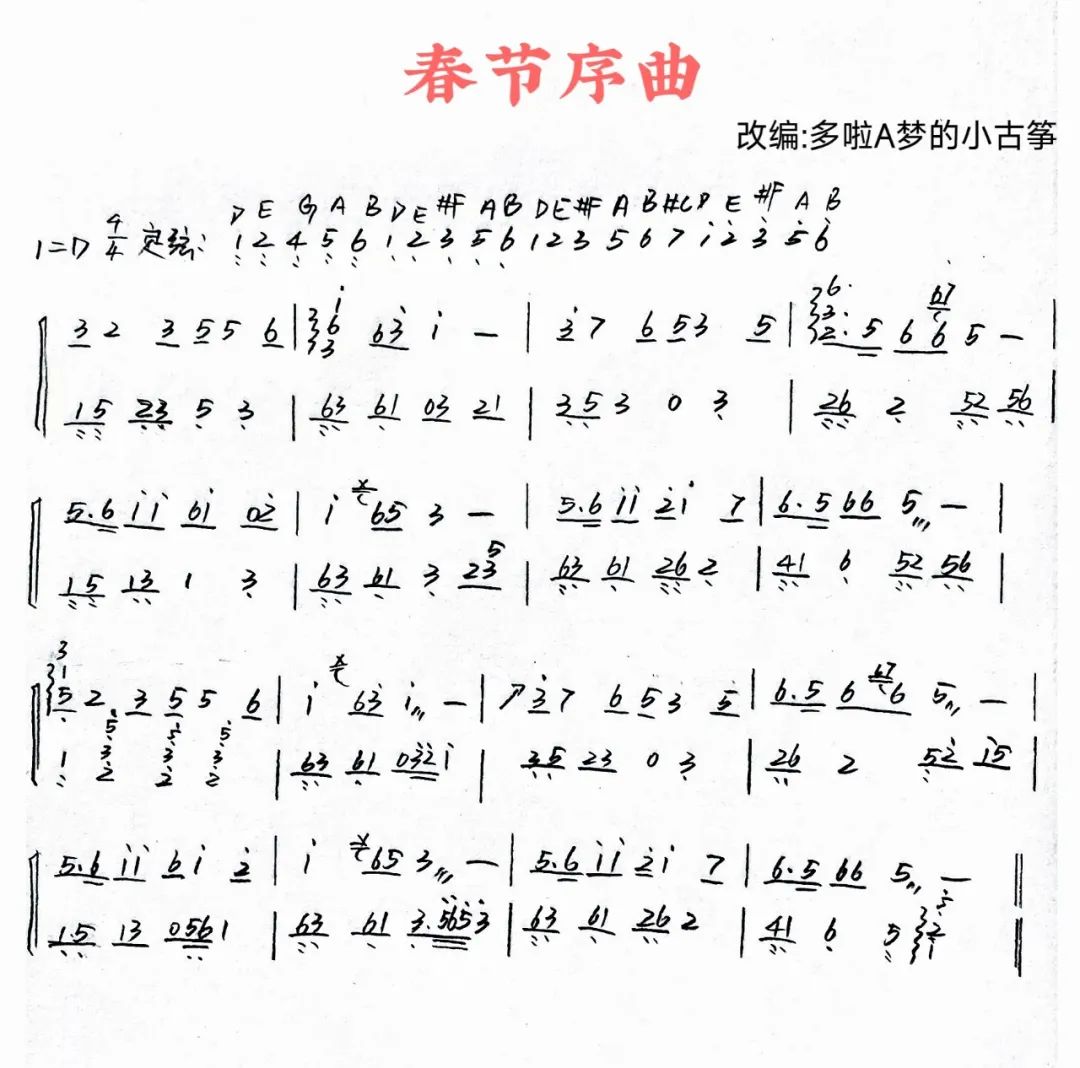 春节序曲
改编:多啦A梦的小古筝
D E G A B D E #F A B D E #F A B #C D E #F A B
1=D 4/4 定弦: 1 2 4 5 6 1 2 3 5 6 1 2 3 5 6 7 i 2 3 5 6
3 2 3 5 5 6 | i 6 3 6 3 i — | 3 7 6 5 3 5 | 6 3 2 . 5 6 67 6 5 — |
1 5 2 3 5 3 | 6 3 6 1 0 3 2 1 | 3 5 3 0 3 | 2 6 2 5 2 5 6 |
5 . 6 i i 6 i 0 2 | i 6 5 3 — | 5 . 6 i i 2 i 7 | 6 . 5 6 6 5 — |
1 5 1 3 1 3 | 6 3 6 1 3 2 3 5 | 6 3 6 1 2 6 2 | 4 1 6 5 2 5 6 |
3 1 5 2 3 5 5 6 | i 6 3 i — | 3 7 6 5 3 5 | 6 . 5 6 67 6 5 — |
1 5 3 2 5 3 2 5 3 2 | 6 3 6 1 0 3 2 1 | 3 5 2 3 0 3 | 2 6 2 5 2 i 5 |
5 . 6 i i 6 i 2 | i 6 5 3 — | 5 . 6 i i 2 i 7 | 6 . 5 6 6 5 — ||
1 . 5 1 3 0 5 6 1 | 6 3 6 1 3 . 5 6 5 3 | 6 3 6 1 2 6 2 | 4 1 6 5 5 2 1 ||